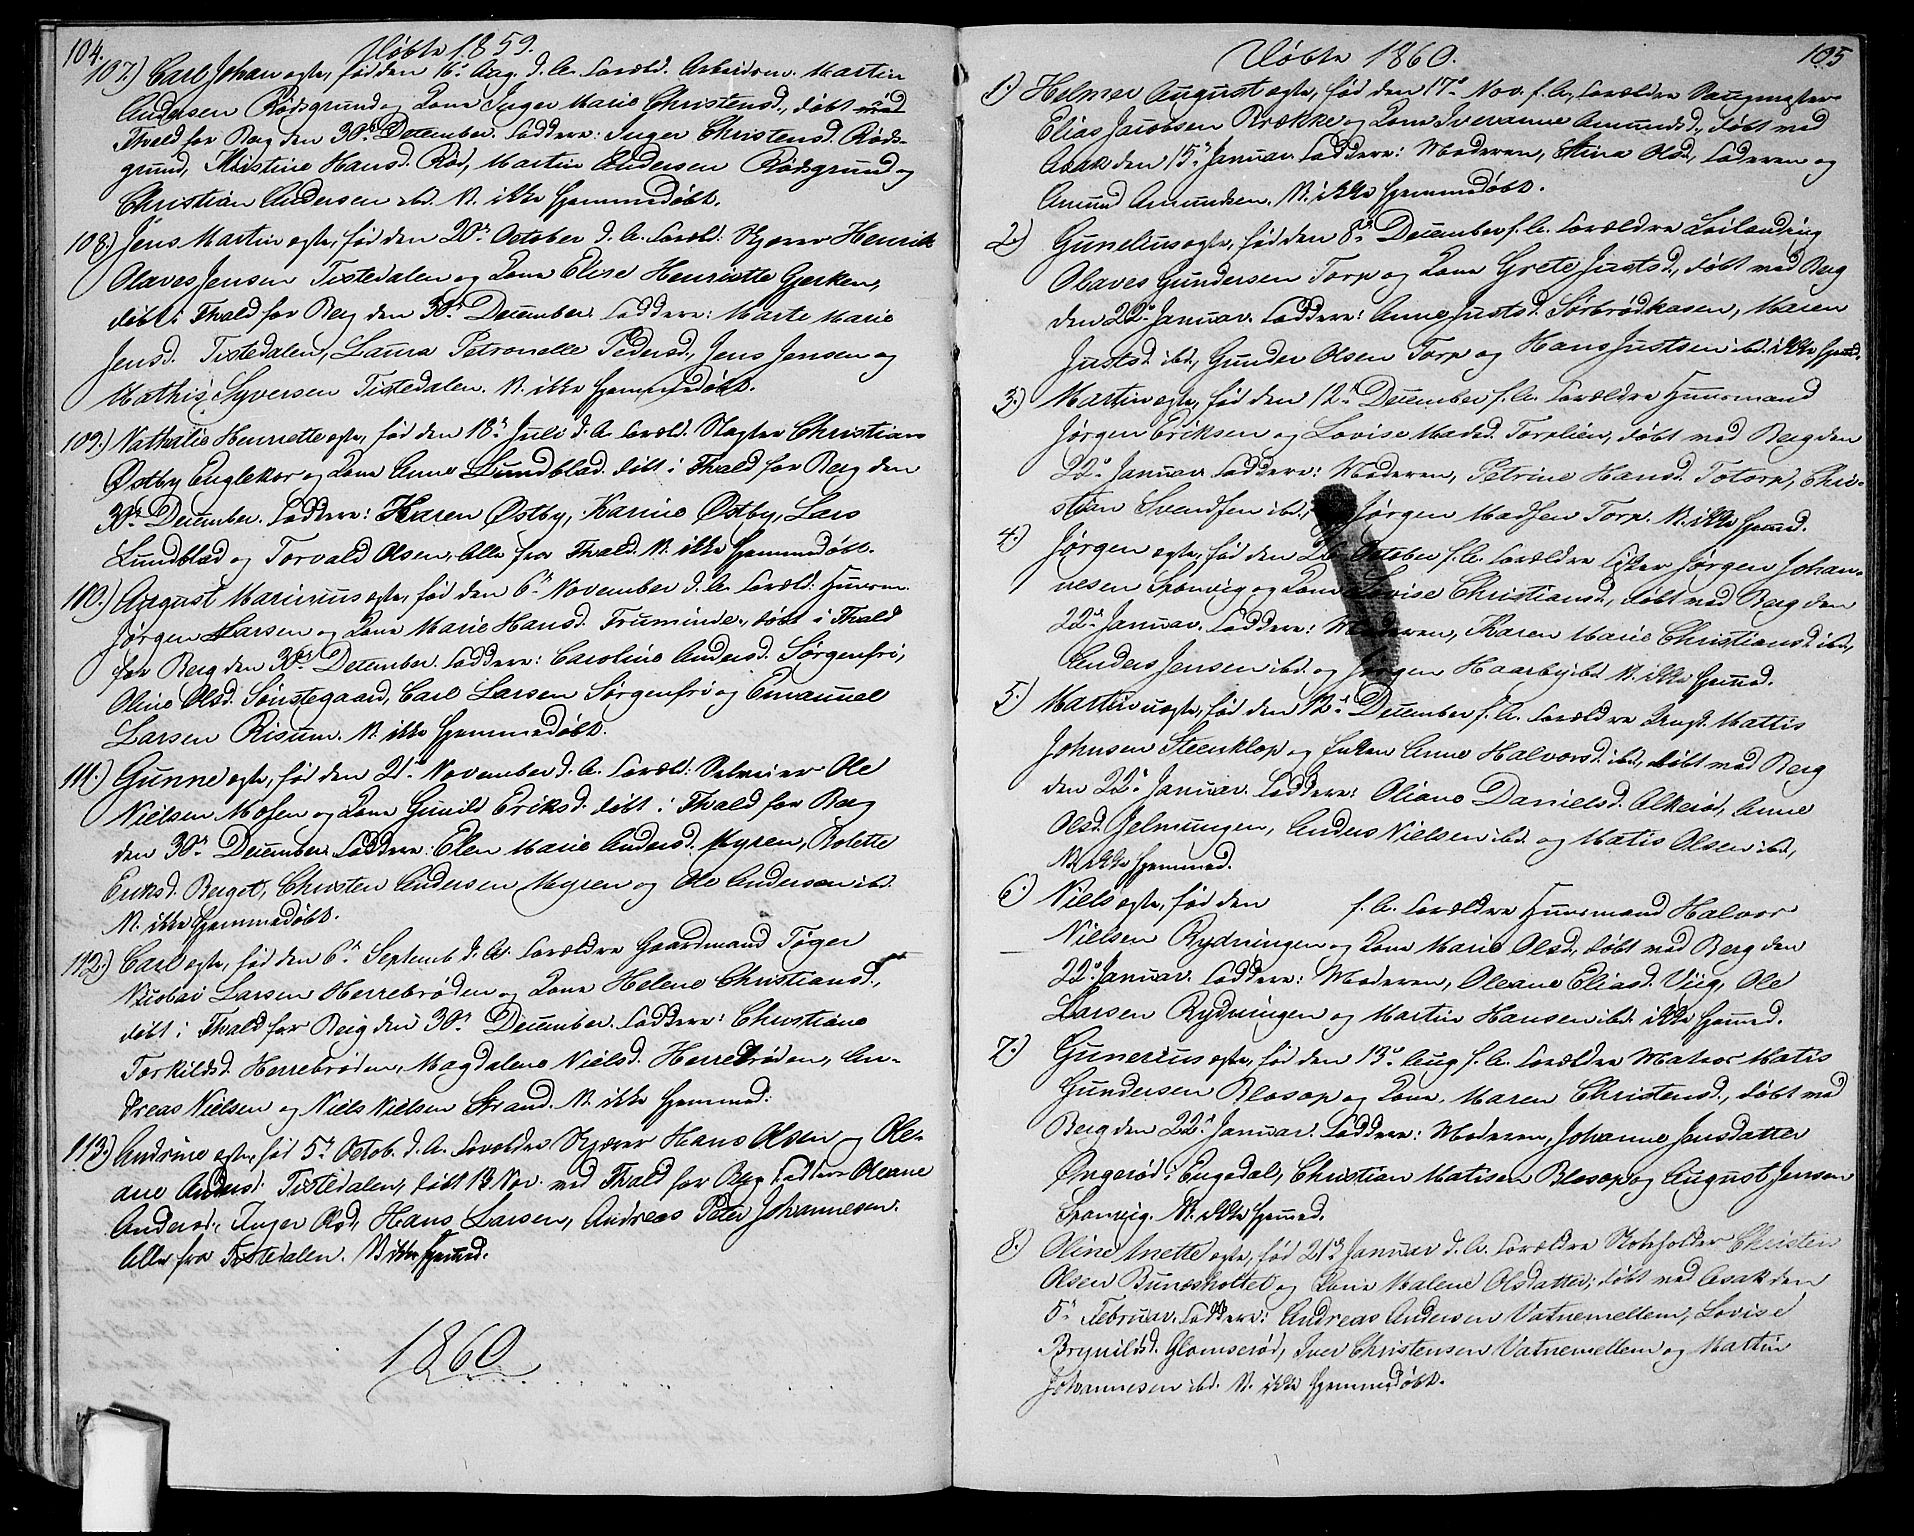 104.
Døbte 1859.
107.) Carl Johan ægte, født den 16de Aug. d. A. Foræld. Arbeidsm. Martin
Andersen Rødsgrund og Kone Inger Marie Christensd., døbt
Fredrikshald for Berg den 30te December. Faddere: Inger Christensd. Røds-
grund, Kristine Hansd. Rød, Martin Andersen Rødsgrund og
Christian Andersen ibd. N. ikke hjemmedøbt.
108.) Jens Martin ægte, født den 20de October d. A. Foræld: Kjører Henrik
Olaves Jensen Tistedalen og Kone Elise Henriette Gjerken,
døbt i Fhald for Berg den 30te December. Faddere: Marte Marie
Jensd. Tistedalen, Laura Petronelle Pedersd., Jens Jensen og
Mathis Syversen Tistedalen. N. ikke hjemmedøbt.
109.) Nathalie Henriette ægte, født den 18de Juli d. A. Foræld. Slagter Christian
Østby Englekor og Kone Anne Lundblad. døbt i Fhald for Berg den
30te December. Faddere: Karen Østby, Karine Østby, Lars
Lundblad og Torvald Olsen, Alle fra Fhald. N. ikke hjemmedøbt.
110.) August Marinius ægte, født den 6te November d. A. Foræld. Huusm.
Jørgen Larsen og Kone Marie Hansd. Fruminde, døbt i Fhald
for Berg den 30te December. Faddere: Caroline Andersd. Sørgenfri,
Oline Olsd. Sønstegaard, Carl Larsen Sørgenfri og Emanuel
Larsen Risum. N. ikke hjemmedøbt.
111.) Gunne ægte, født den 21de November d. A. Foræld: Ole
Nielsen Mosen og Kone Gunild Eriksd. døbt i Fhald for Berg
den 30te December. Faddere: Elen Marie Andersd. Myren, Bolette
Eriksd. Berget, Christen Andersen Myren og Ole Andersen ibd.
N. ikke hjemmedøbt.
112.) Carl ægte, født den 6te Septemb. d. A. Forældre Gaardmand Tøger
Larsen Herrebrøden og Kone Helene Christiansd.,
døbt i Fhald for Berg den 30te December. Faddere: Christiane
Torkildsd. Herrebrøden, Magdalene Nielsd. Herrebrøden, An-
dreas Nielsen og Niels Nielsen Strand. N. ikke hjemmed:
113.) Andrine ægte, født 5te Octob. d. A. Forældre Kjører Hans Olsen og Ole-
ane Andersd: Tistedalen, døbt 13 Nov. ved Fhald for Berg. Faddere Oleane
Andersd., Inger Olsd., Hans Larsen, Andreas Peter Johannesen.
Alle fra Tistedalen. N. ikke hjemd.
1860
105
Døbte 1860.
1.) Helmer August ægte, født den 17de Nov. f. A., Forældre Saugmester
Elias Jacobsen Brække og Kone Iveranne Amundsd., døbt ved
Asak den 15de Januar. Faddere: Moderen, Stina Olsd., Faderen og
Amund Amundsen. N. ikke hjemmedøbt.
2.) Gunelius ægte, født den 8de December f. A. Forældre Løilending
Olaves Gundersen Torp og Kone Grete Justsd., døbt ved Berg
den 22de Januar. Faddere: Anne Justsd. Sørbrødkasen, Maren
Justsd. ibd., Gunder Olsen Torp og Hans Justsen ibd. ikke hjemd.
3.) Martin ægte, født den 12te December f. A. Forældre Huusmand
Jørgen Eriksen og Lovise Madsd. Torplien, døbt ved Berg den
22de Januar. Faddere: Moderen, Petrine Hansd. Totorp, Chri-
stian Svendsen ibd., Jørgen Madsen Torp. N. ikke hjemd.
4.) Jørgen ægte, født den October f. A. Forældre Fisker Jørgen Johan-
nesen Sponvig og Kone Lovise Christiansd., døbt ved Berg den
22de Januar. Faddere: Moderen, Karen Marie Christiansd. ibd.,
Anders Jensen ibd. og Jørgen Haarby ibd. N. ikke hjemd.
5.) Martin uægte, født den 12te December f. A. Forældre Ungk. Mattis
Johnsen Steenklop og Enken Anne Halvorsd. ibd., døbt ved Berg
den 22de Januar. Faddere: Oliane Danielsd. Alkerød, Anne
Olsd. Jelmungen, Anders Nielsen ibd. og Matis Olsen ibd.,
N. ikke hjemmed.
6.) Niels ægte, født den f. A. Forældre Huusmand Halvor
Nielsen Rydningen og Kone Marie Olsd., døbt ved Berg den
22de Januar. Faddere: Moderen, Oleane Eliasd. Viig, Ole
Larsen Rydningen og Martin Hansen ibd. ikke hjemd.
7.) Gunerius ægte, født den 13de Aug f. A. Forældre Matros Matis
Gundersen Blosop og Kone Maren Christensd., døbt ved
Berg den 22de Januar. Faddere: Moderen, Johanne Jensdatter
Ongerød i Engedal, Christian Matisen Blosop og August Jensen
Sponvig. N. ikke hjemd.
8.) Oline Anette ægte, født 21de Januar d. A. Forældre Christen
Olsen Bunesholtet og Kone Malene Olsdatter, døbt ved Asak den
5te Februar. Faddere: Andreas Andersen Vatnemellem, Lovise
Brynildsd. Glomserød, Iver Christensen Vatnemellem og Martin
Johannesen ibd. N. ikke hjemmedøbt.